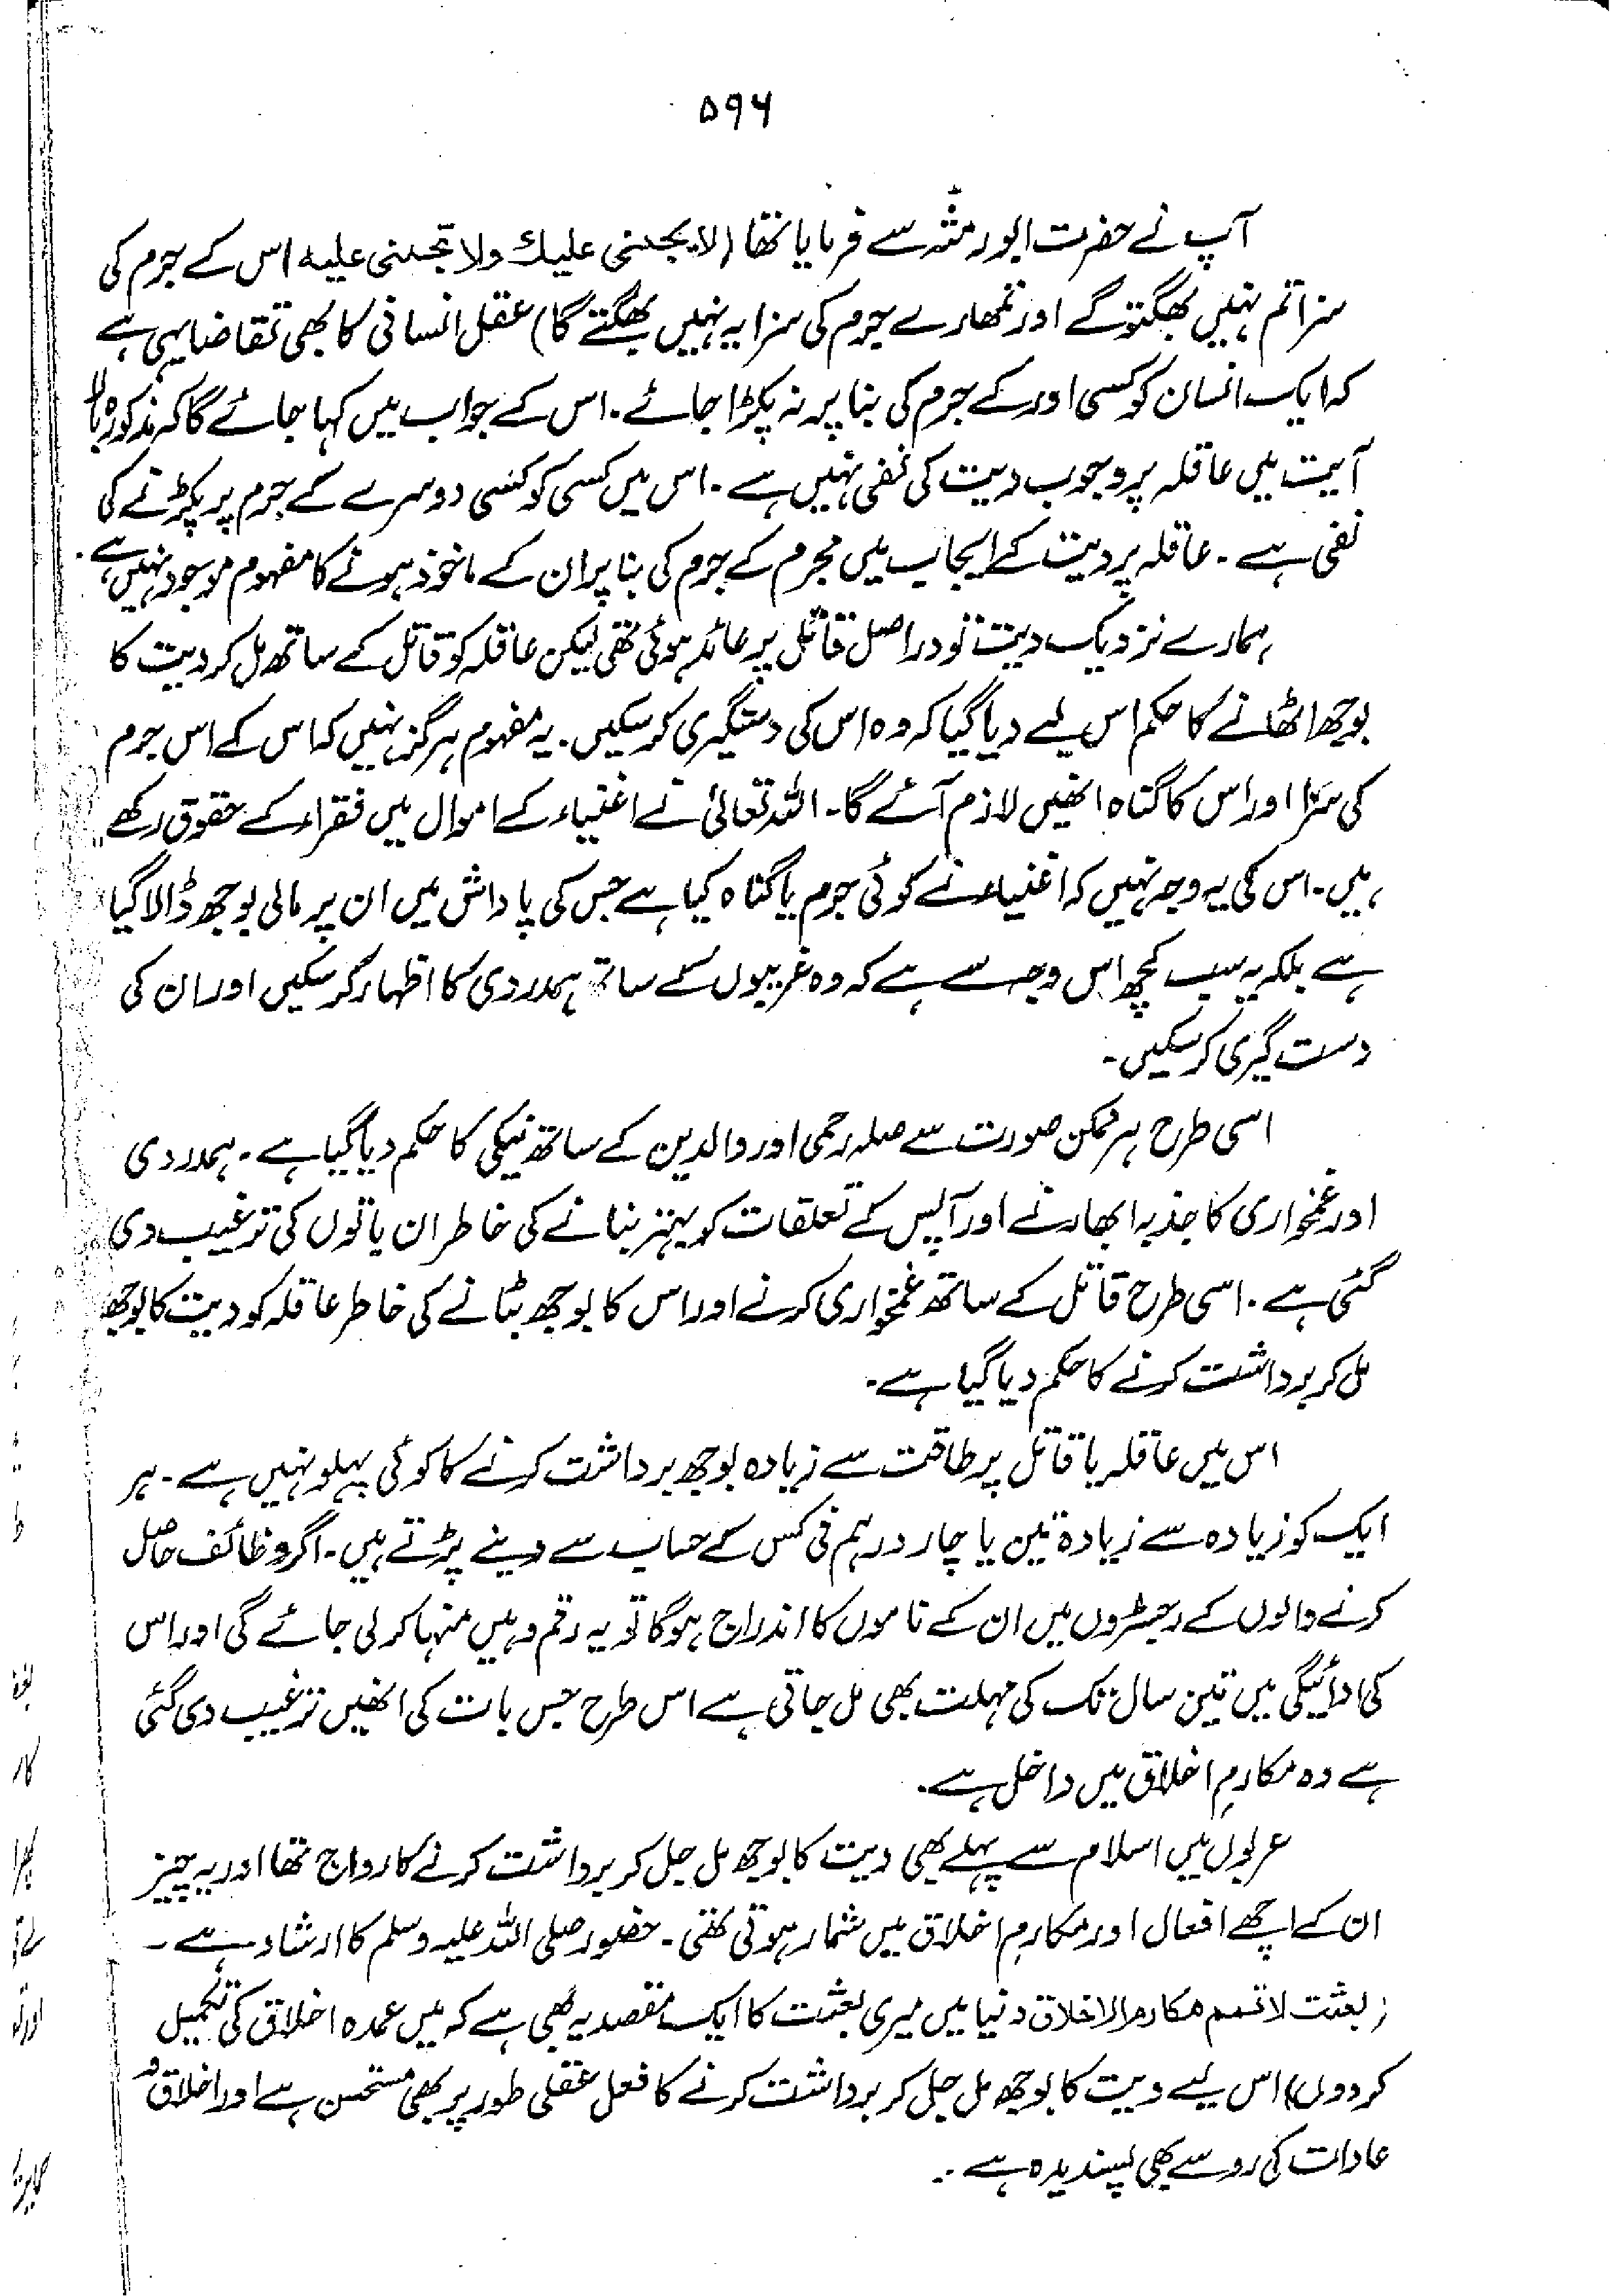 ۵۹۶
آپ نے حضرت ابو رمثہؓ سے فرمایا تھا (لا یجنی علیك ولا تجنی علیه اس کے جرم کی
سزا تم نہیں بھگتو گے اور تمھارے جرم کی سزا یہ نہیں بھگتے گا) عقل انسانی کا بھی تقاضا یہی ہے
کہ ایک انسان کو کسی اور کے جرم کی بنا پر نہ پکڑا جائے۔ اس کے جواب میں کہا جائے گا کہ مذکورہ بالا
آیت میں عاقلہ پر وجوب دیت کی نفی نہیں ہے۔ اس میں کسی کو کسی دوسرے کے جرم پر پکڑنے کی
نفی ہے۔ عاقلہ پر دیت کے ایجاب میں مجرم کے جرم کی بنا پر ان کے ماخوذ ہونے کا مفہوم موجود نہیں ہے۔
ہمارے نزدیک دیت تو دراصل قاتل پر عائد ہوئی تھی لیکن عاقلہ کو قاتل کے ساتھ مل کر دیت کا
بوجھ اٹھانے کا حکم اس لیے دیا گیا کہ وہ اس کی دستگیری کر سکیں۔ یہ مفہوم ہرگز نہیں کہ اس کے اس جرم
کی سزا اور اس کا گناہ انھیں لازم آئے گا۔ اللہ تعالیٰ نے اغنیاء کے اموال میں فقراء کے حقوق رکھے
ہیں۔ اس کی یہ وجہ نہیں کہ اغنیاء نے کوئی جرم یا گناہ کیا ہے جس کی پاداش میں ان پر مالی بوجھ ڈالا گیا
ہے بلکہ یہ سب کچھ اس وجہ سے ہے کہ وہ غریبوں کے ساتھ ہمدردی کا اظہار کر سکیں اور ان کی
دست گیری کر سکیں۔
اسی طرح ہر ممکن صورت سے صلہ رحمی اور والدین کے ساتھ نیکی کا حکم دیا گیا ہے۔ ہمدردی
اور غمخواری کا جذبہ ابھارنے اور آپس کے تعلقات کو بہتر بنانے کی خاطر ان باتوں کی ترغیب دی
گئی ہے۔ اسی طرح قاتل کے ساتھ غمخواری کرنے اور اس کا بوجھ بٹانے کی خاطر عاقلہ کو دیت کا بوجھ
مل کر برداشت کرنے کا حکم دیا گیا ہے۔
اس میں عاقلہ یا قاتل پر طاقت سے زیادہ بوجھ برداشت کرنے کا کوئی پہلو نہیں ہے۔ ہر
ایک کو زیادہ سے زیادہ تین یا چار درہم فی کس کے حساب سے دینے پڑتے ہیں۔ اگر وظائف حاصل
کرنے والوں کے رجسٹروں میں ان کے ناموں کا اندراج ہوگا تو یہ رقم وہیں منہا کر لی جائے گی اور اس
کی ادائیگی میں تین سال تک کی مہلت بھی مل جاتی ہے اس طرح جس بات کی انھیں ترغیب دی گئی
ہے وہ مکارمِ اخلاق میں داخل ہے۔
عربوں میں اسلام سے پہلے بھی دیت کا بوجھ مل جل کر برداشت کرنے کا رواج تھا اور یہ چیز
ان کے اچھے افعال اور مکارمِ اخلاق میں شمار ہوتی تھی۔ حضور صلی اللہ علیہ وسلم کا ارشاد ہے۔
(بعثت لاتمم مکارم الاخلاق دنیا میں میری بعثت کا ایک مقصد یہ بھی ہے کہ میں عمدہ اخلاق کی تکمیل
کر دوں) اس لیے دیت کا بوجھ مل جل کر برداشت کرنے کا فعل عقلی طور پر بھی مستحسن ہے اور اخلاق و
عادات کی رو سے بھی پسندیدہ ہے۔